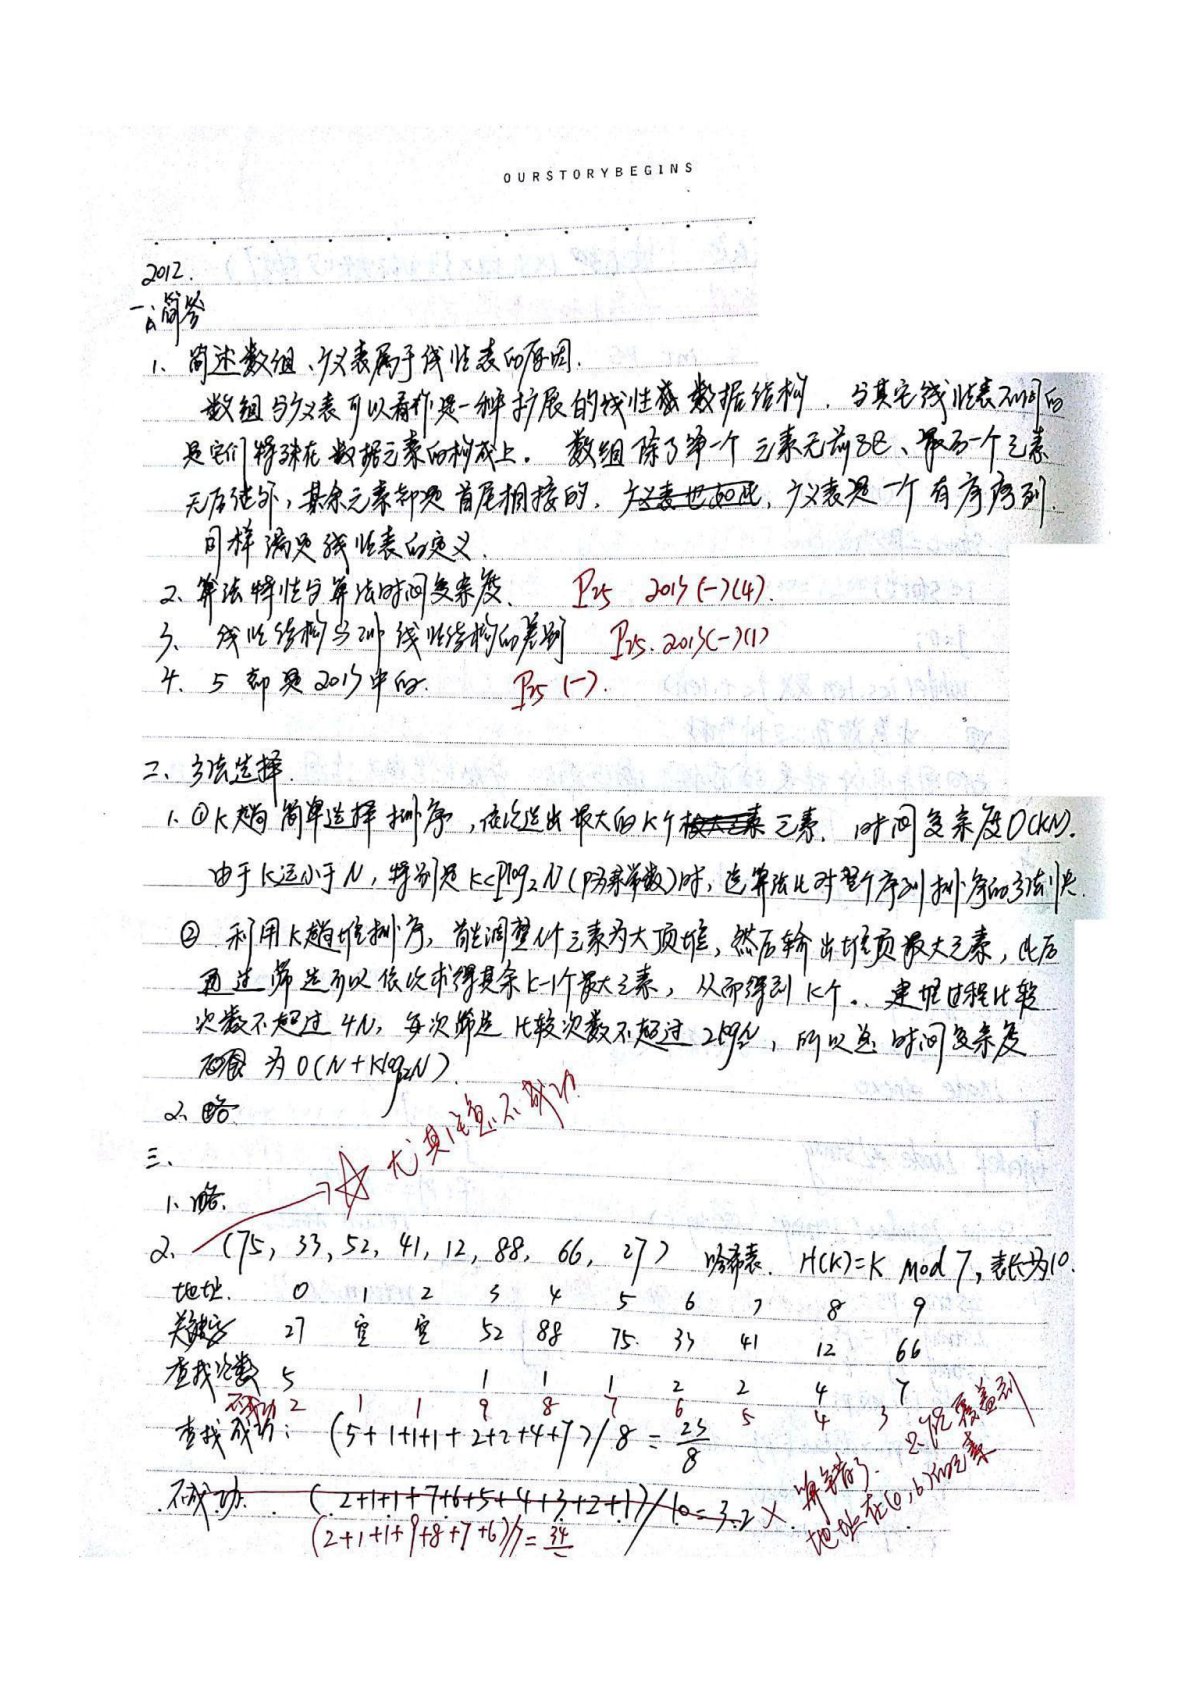 OURSTORYBEGINS
2012.
一、简答
1. 简述数组、广义表属于线性表的原因.
数组与广义表可以看作是一种扩展的线性数据结构，与其它线性表不同的
是它们特殊在数据元素的构成上。数组除了第一个元素无前驱、最后一个元素
无后继外，其余元素都是首尾相接的，广义表也如此，广义表是一个有序序列.
同样满足线性表的定义.
2、算法特性与算法时间复杂度、 P25 2013(一)(4).
3、线性结构与非线性结构的差别 P25. 2013(一)(1)
4. 5 都是2013中的. P25 (一).
二、方法选择.
1. ①K趟简单选择排序，依次选出最大的K个元素. 时间复杂度O(KN).
由于K远小于N，特别是K<Plog₂N(P为某常数)时，选算法比对整个序列排序的方法快.
② 利用K趟堆排序，首先调整N个元素为大顶堆，然后输出堆顶最大元素，此后
通过筛选可以依次求得其余K-1个最大元素，从而得到K个. 建堆过程比较
次数不超过4N，每次筛选比较次数不超过2log₂N，所以总时间复杂度
为O(N+Klog₂N).
2、略.
尤其注意:不成功
三、
1、略.
2、(75, 33, 52, 41, 12, 88, 66, 27) 哈希表. H(K)=K mod 7, 表长为10.
地址. 0 1 2 3 4 5 6 7 8 9
关键字 27 空 空 52 88 75. 33 41 12 66
查找次数 5 1 1 1 2 2 4 7
不成功 2 1 1 9 8 7 6 5 4 3
查找成功: (5+1+1+1+2+2+4+7)/8 = 23/8
不成功. (2+1+1+7+6+5+4+3+2+1)/10=3.2 ×
(2+1+1+9+8+7+6)/7=34/
算错了. 只能覆盖到
地址在(0,6)的元素